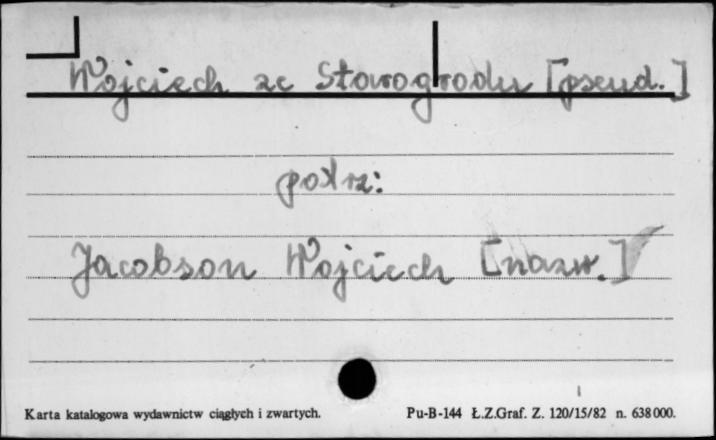 Wojciech ze Starogrodu [pseud.]
patrz:
Jacobson Wojciech [nazw.]
Karta katalogowa wydawnictw ciągłych i zwartych. Pu-B-144 Ł.Z.Graf. Z. 120/15/82 n. 638000.